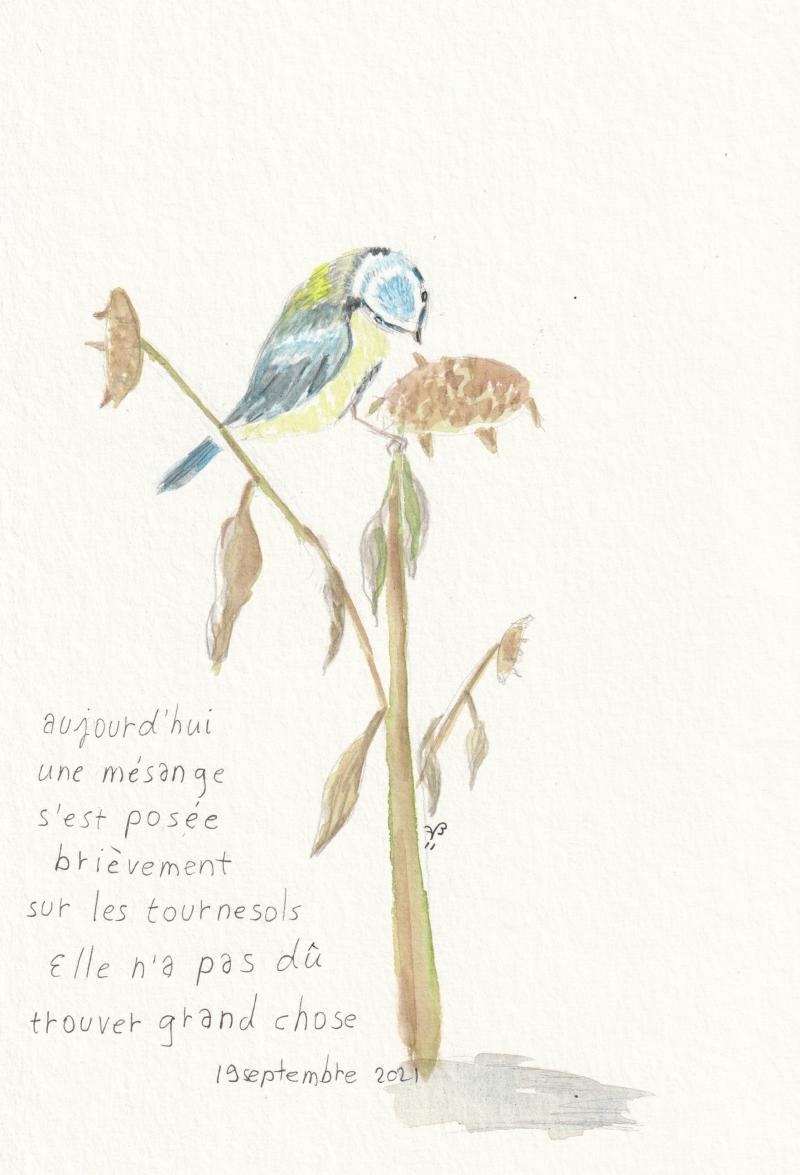 aujourd'hui
une mésange
s'est posée
brièvement
sur les tournesols
Elle n'a pas dû
trouver grand chose
19 septembre 2021